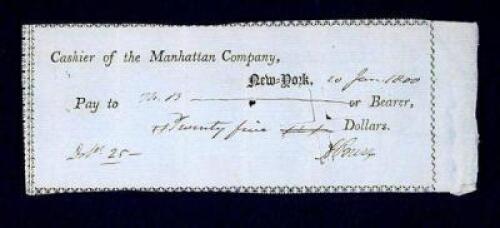 Cashier of the Manhattan Company,
New-York, 20 Jan 1800
Pay to No. 13 or Bearer,
Twenty five Dollars.
Dolls 25 —